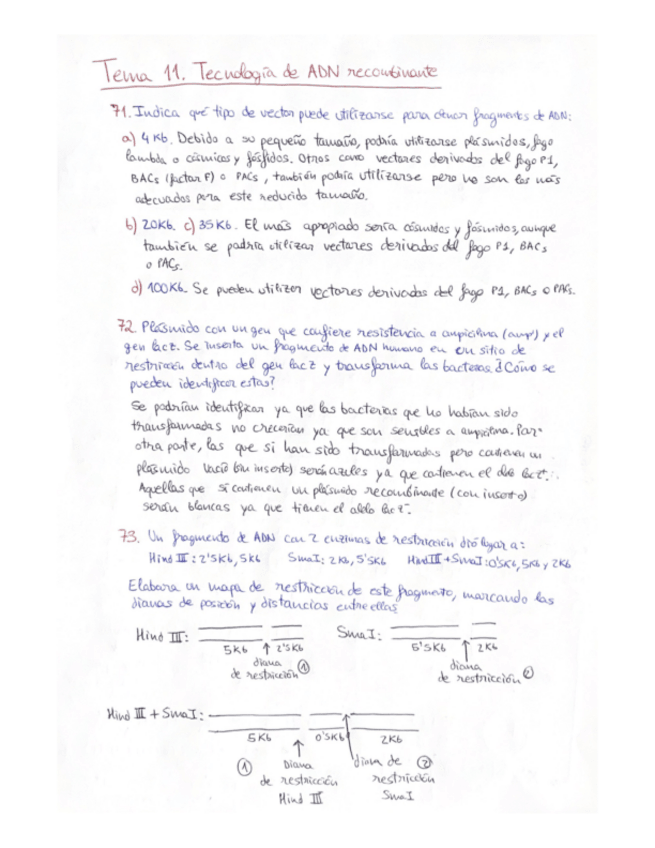 Tema 11. Tecnología de ADN recombinante
71. Indica qué tipo de vector puede utilizarse para clonar fragmentos de ADN:
a) 4 Kb. Debido a su pequeño tamaño, podría utilizarse plásmidos, fago
lambda o cósmicos y fósfidos. Otros como vectores derivados del fago P1,
BACs (factor F) o PACs, también podría utilizarse pero no son los más
adecuados para este reducido tamaño.
b) 20Kb. c) 35Kb. El más apropiado sería cósmidos y fósmidos, aunque
también se podría utilizar vectores derivados del fago P1, BACs
o PACs.
d) 100Kb. Se pueden utilizar vectores derivados del fago P1, BACs o PACs.
72. Plásmido con un gen que confiere resistencia a ampicilina (ampʳ) y el
gen lacz. Se inserta un fragmento de ADN humano en un sitio de
restricción dentro del gen lacz y transforma las bacterias. ¿Cómo se
pueden identificar estas?
Se podrían identificar ya que las bacterias que no habían sido
transformadas no crecerían ya que son sensibles a ampicilina. Por
otra parte, las que si han sido transformadas pero contienen un
plásmido vacío (sin inserto) serán azules ya que contienen el lacz⁺.
Aquellas que si contienen un plásmido recombinante (con inserto)
serán blancas ya que tienen el alelo lacz⁻.
73. Un fragmento de ADN con 2 enzimas de restricción dió lugar a:
Hind III: 2'5Kb, 5Kb SmaI: 2Kb, 5'5Kb Hind III + SmaI: 0'5Kb, 5Kb y 2Kb
Elabora un mapa de restricción de este fragmento, marcando las
dianas de posición y distancias entre ellas
Hind III: SmaI:
5Kb 2'5Kb 5'5Kb 2Kb
diana diana
de restricción ① de restricción ②
Hind III + SmaI:
5Kb 0'5Kb 2Kb
① Diana diana de ②
de restricción restricción
Hind III SmaI